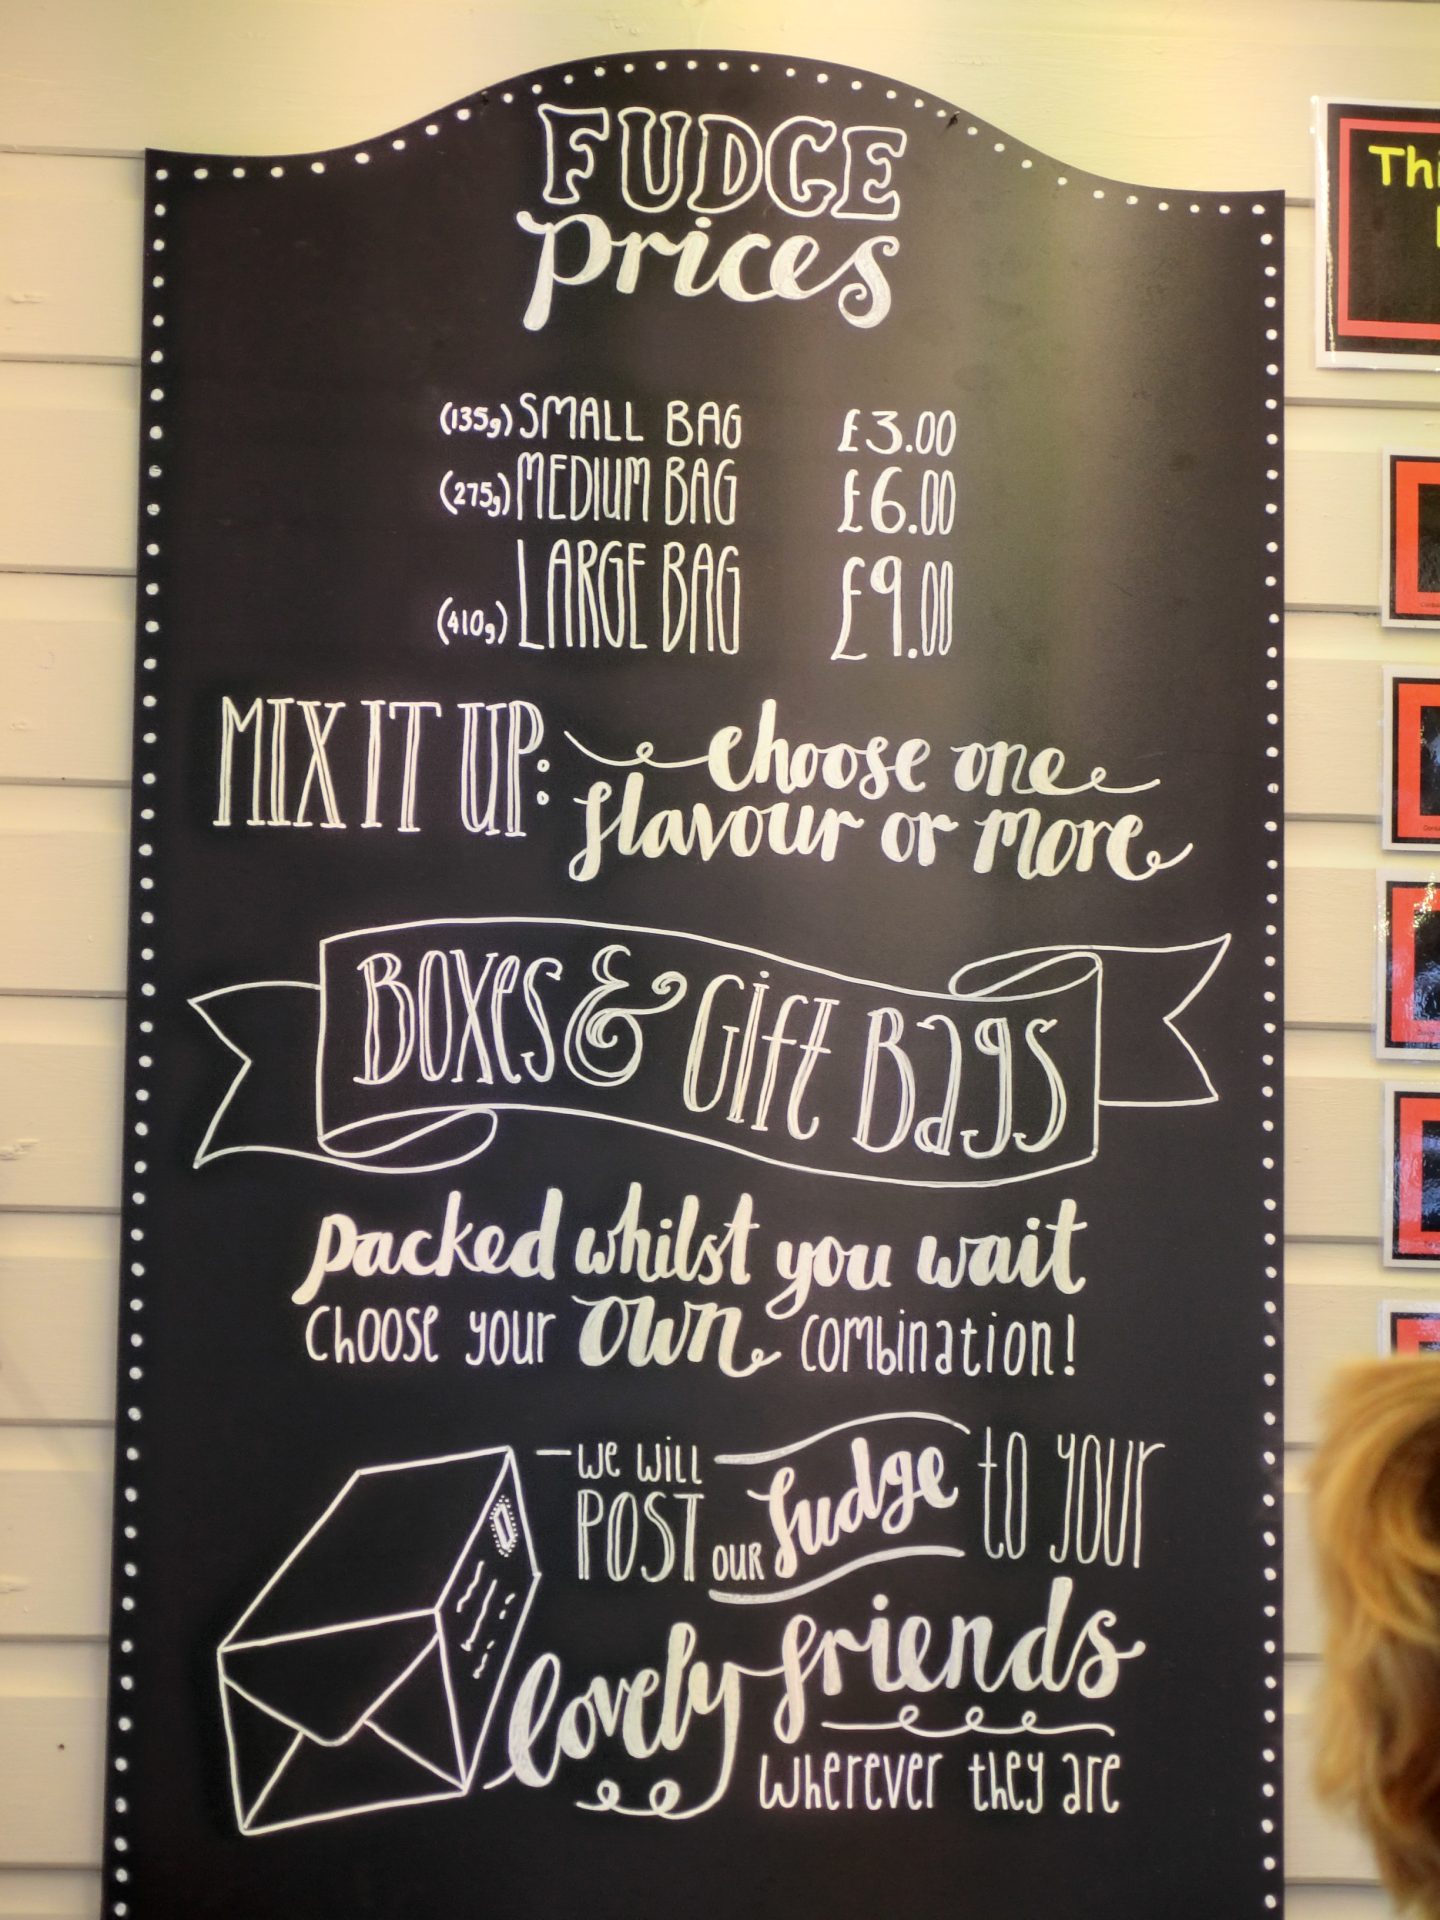 FUDGE
Prices
(135g) SMALL BAG £3.00
(275g) MEDIUM BAG £6.00
(410g) LARGE BAG £9.00
MIX IT UP: choose one
flavour or more
BOXES & GIFT BAGS
packed whilst you wait
choose your own combination!
we will
POST our fudge to your
lovely friends
wherever they are